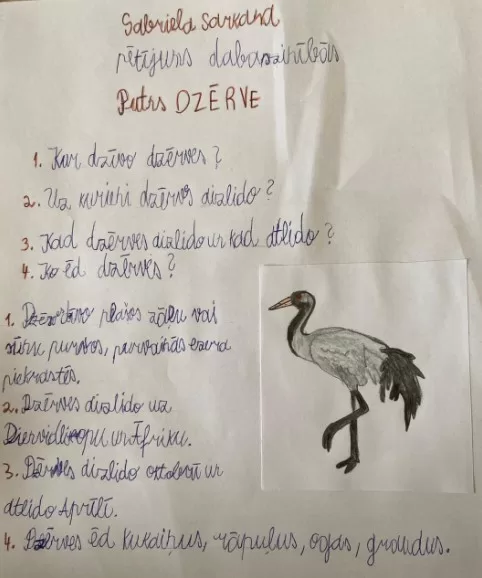 Gabriela Sarkanā
pētījums dabaszinībās
Putns DZĒRVE
1. Kur dzīvo dzērves?
2. Uz kurieni dzērves aizlido?
3. Kad dzērves aizlido un kad atlido?
4. Ko ēd dzērves?
1. plašos zāļu vai
sūnu purvos, purvainās ezera
piekrastēs.
2. Dzērves aizlido uz
Dienvideiropu un Āfriku.
3. Dzērves aizlido oktobrī un
atlido Aprīlī.
4. Dzērves ēd kukaiņus, rāpuļus, ogas, graudus.